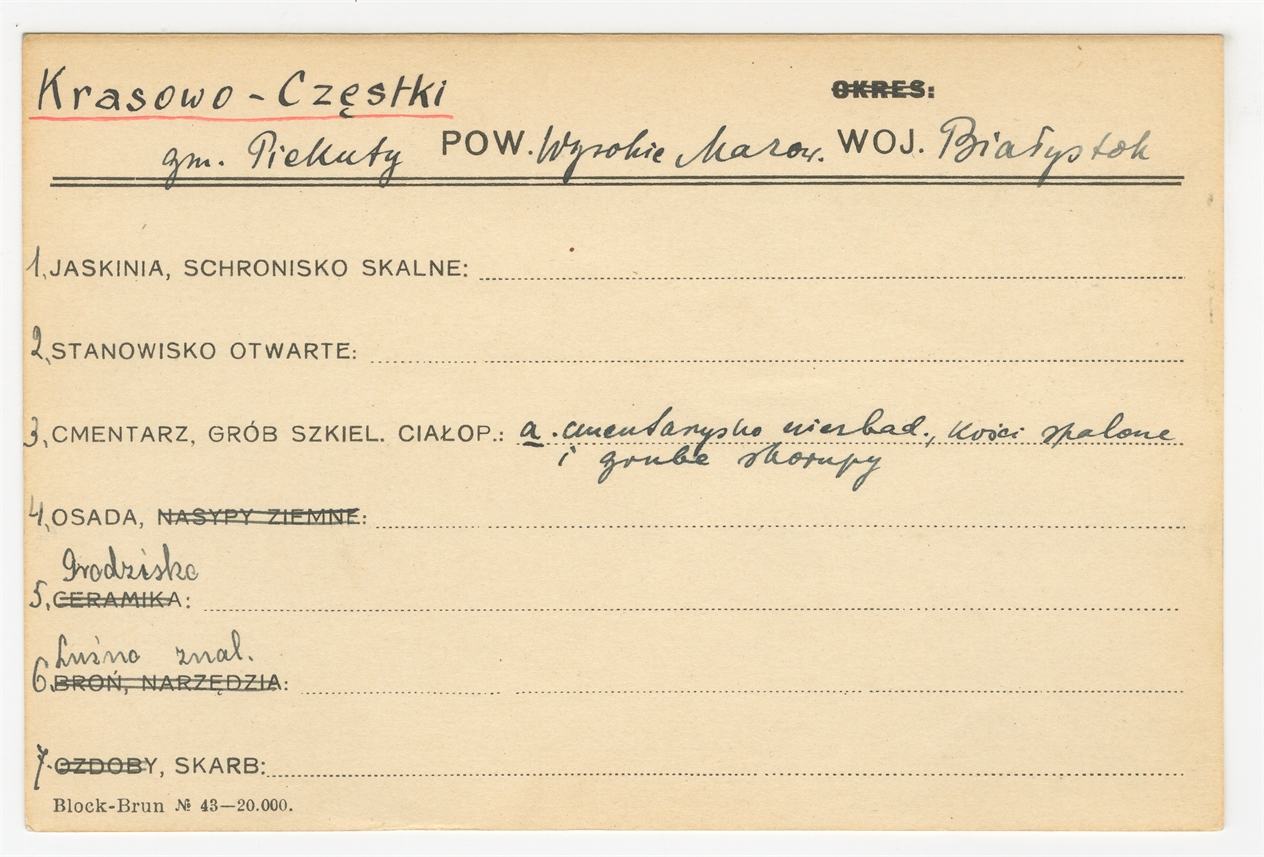 Krasowo-Częstki OKRES:
gm. Piekuty POW. Wysokie Mazow. WOJ. Białystok
1. JASKINIA, SCHRONISKO SKALNE:
2. STANOWISKO OTWARTE:
3. CMENTARZ, GRÓB SZKIEL. CIAŁOP.: a. cmentarysko niezbad., kości spalone
i grube skorupy
4. OSADA, NASYPY ZIEMNE:
Grodzisko
5. CERAMIKA:
Luźne znal.
6. BROŃ, NARZĘDZIA:
7. OZDOBY, SKARB:
Block-Brun № 43—20.000.